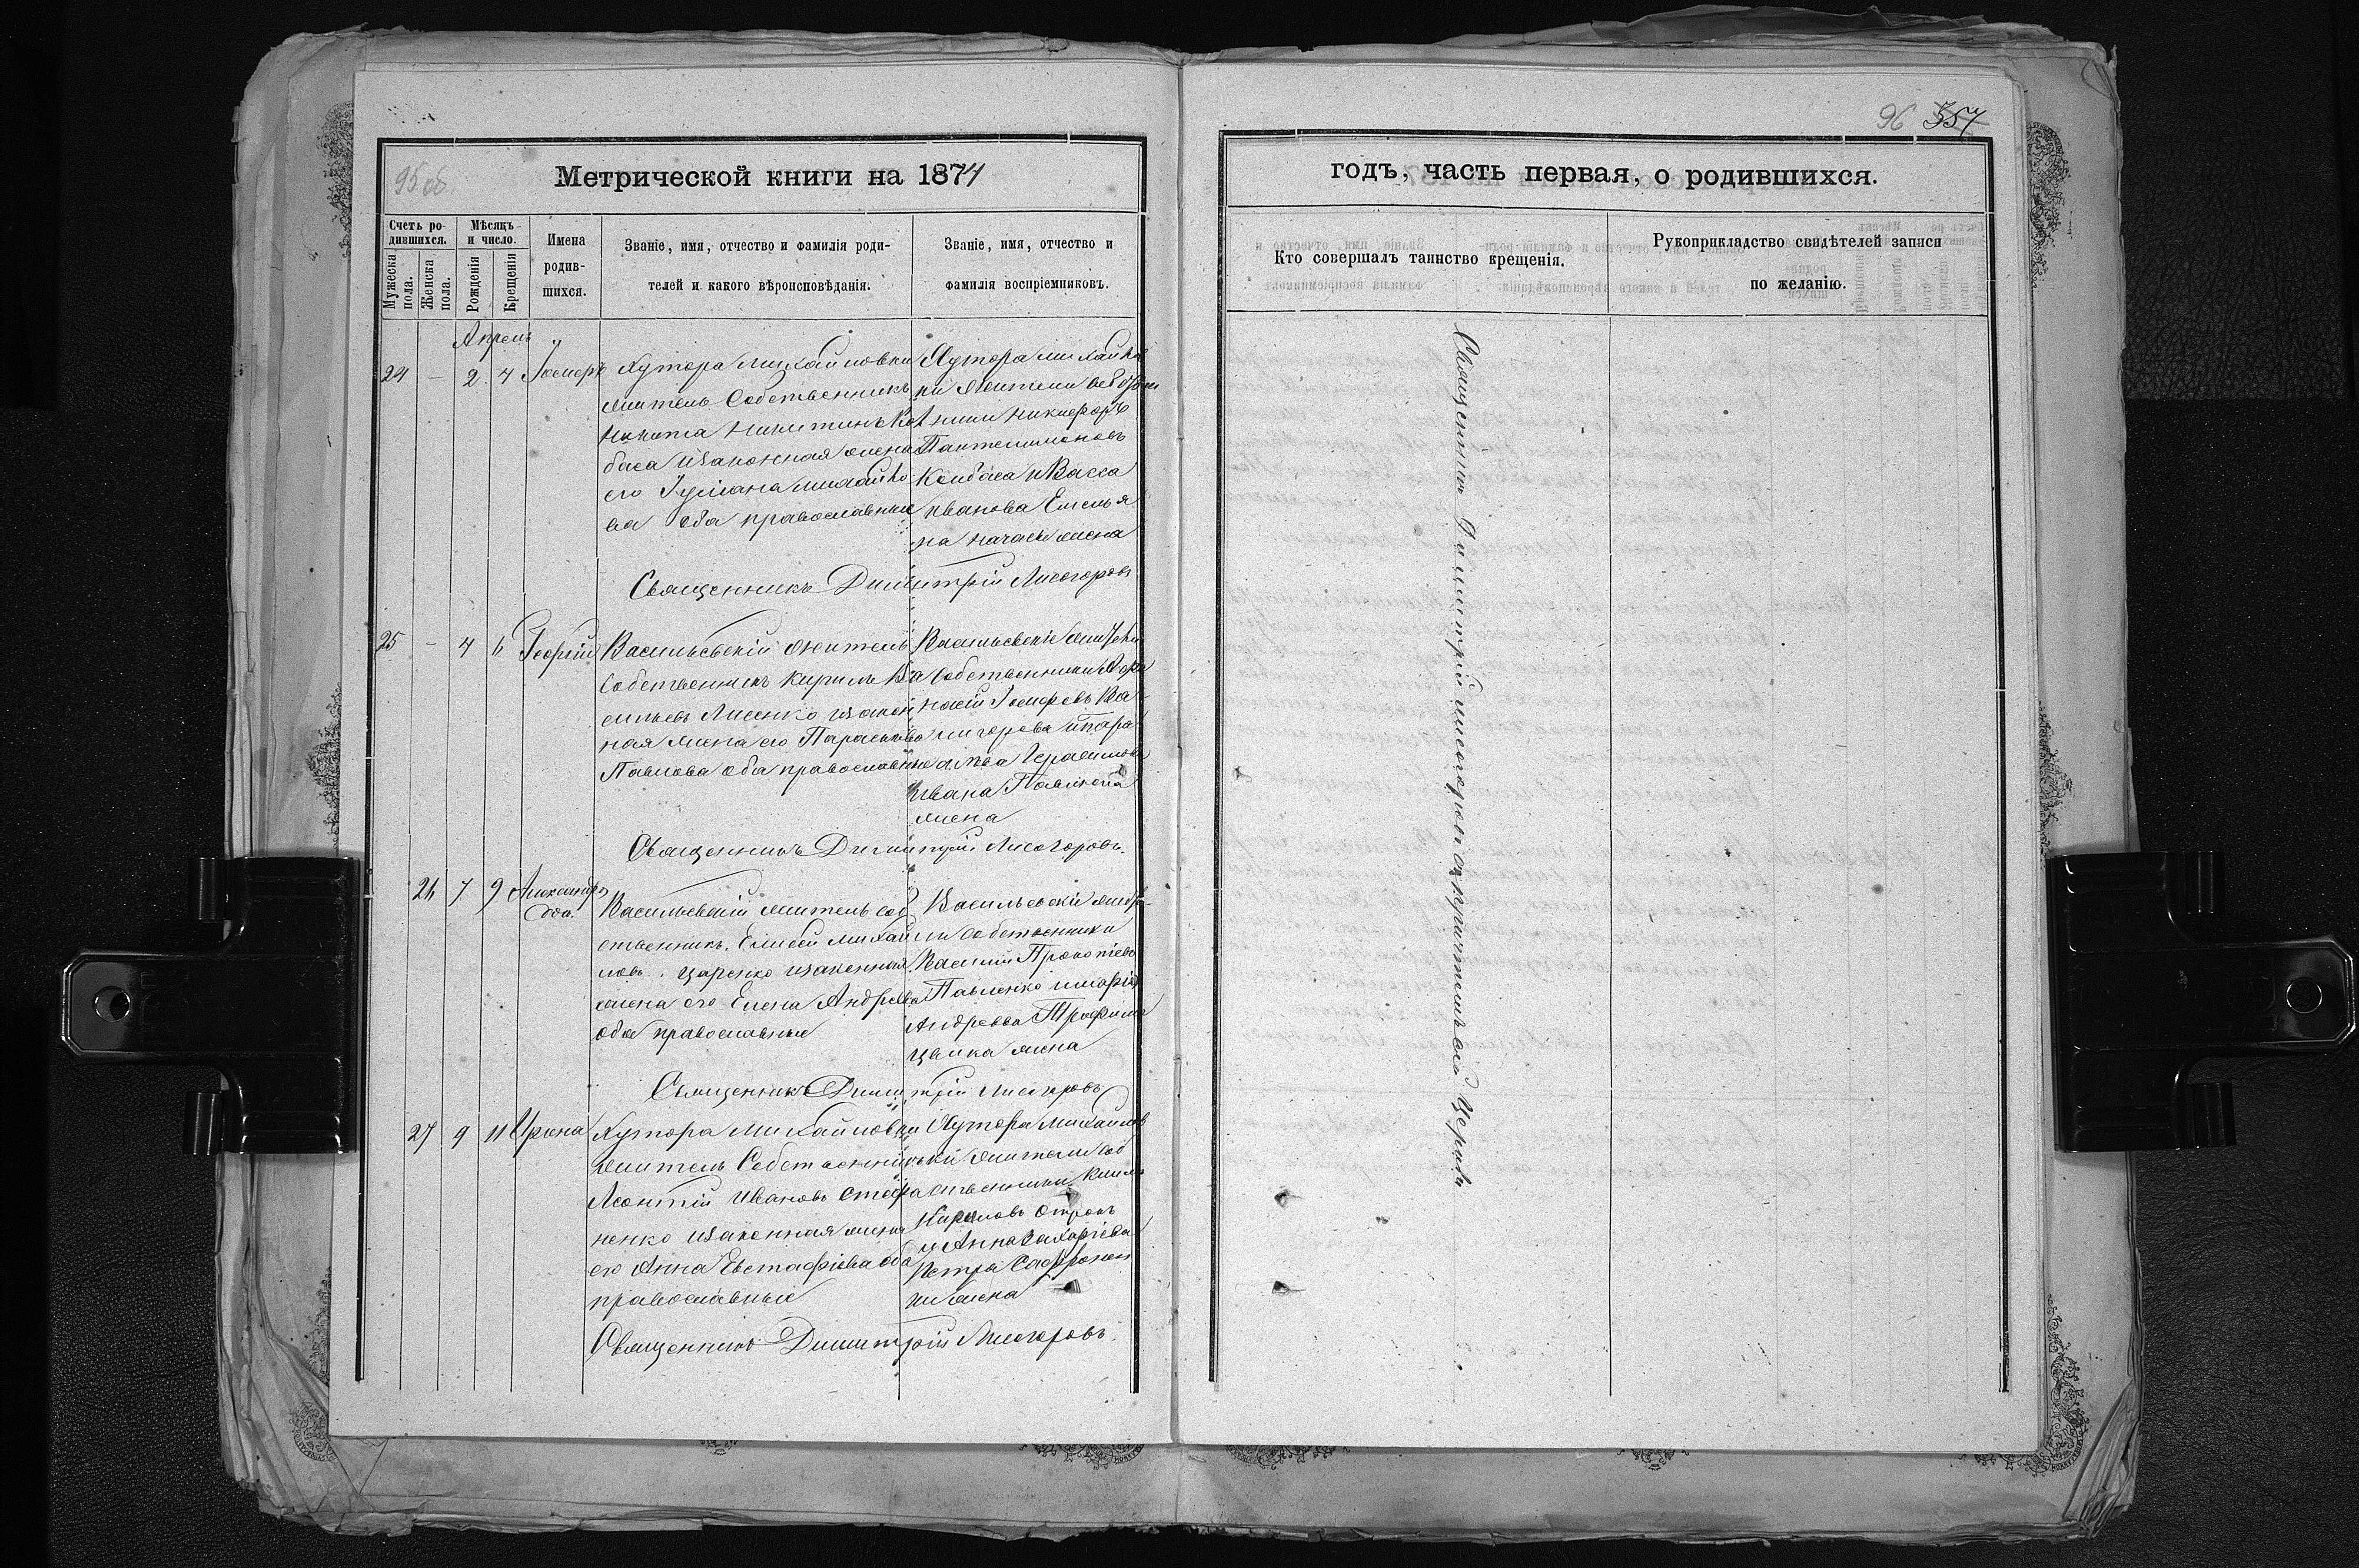 95 об
Метрической книги на 1874
Счетъ ро-
дившихся.
Мѣсяцъ
и число.
Имена
родив-
шихся.
Званіе, имя, отчество и фамилія роди-
телей и какого вѣроисповѣданія.
Званіе, имя, отчество и
фамилія воспріемниковъ.
Мужеска
пола.
Женска
пола.
Рожденія
Крещенія
Апрель
24 – 2 4 Іосифъ
Хутора Михайловки
житель Собственникъ
Никита Никитинъ Кол
баса изаконная жена
его Іуліана Михайло
ва оба православные
Хутора Михайлов
ки жители собствен
ники Никифоръ
Пантелимоновъ
Колбаса и Васса
Иванова Емелья
на жена
Священникъ Димитрій Лисогоровъ
25 – 4 6 Георгій
Васильевскій житель
собственникъ Кирилъ Ва
сильевъ Лисенко изакон
ная жена его Параскева
Павлова оба православные
Васильевскіе жители
собственники Афа
насій Іосифовъ
Герасимова
Ивана Павленка
жена
Священникъ Димитрій Лисогоровъ.
26 7 9 Александра
Васильевскій житель соб
ственникъ Елисей Михай
ловъ Царенко изаконная
жена его Елена Андреева
оба православные
Васильевскіе жите
ли собственники
Василій Прокопіевъ
Павленко и Марія
Андреева Трофима
жена
Священникъ Димитрій Лисогоровъ
27 9 11 Ирина
Хутора Михайловки
житель Собственникъ
Леонтій Ивановъ Стефа
ненко изаконная жена
его Анна Евстафіева оба
православные
Хутора Михайлов
ки жители соб
ственники
Кириловъ
и Анна Захаріева
Петра
жена
Священникъ Димитрій Лисогоровъ.
96 357
годъ, часть первая, о родившихся.
Кто совершалъ таинство крещенія.
Рукоприкладство свидѣтелей записи
по желанію.
Священникъ Димитрій Лисогоровъ съ причтомъ Церкви